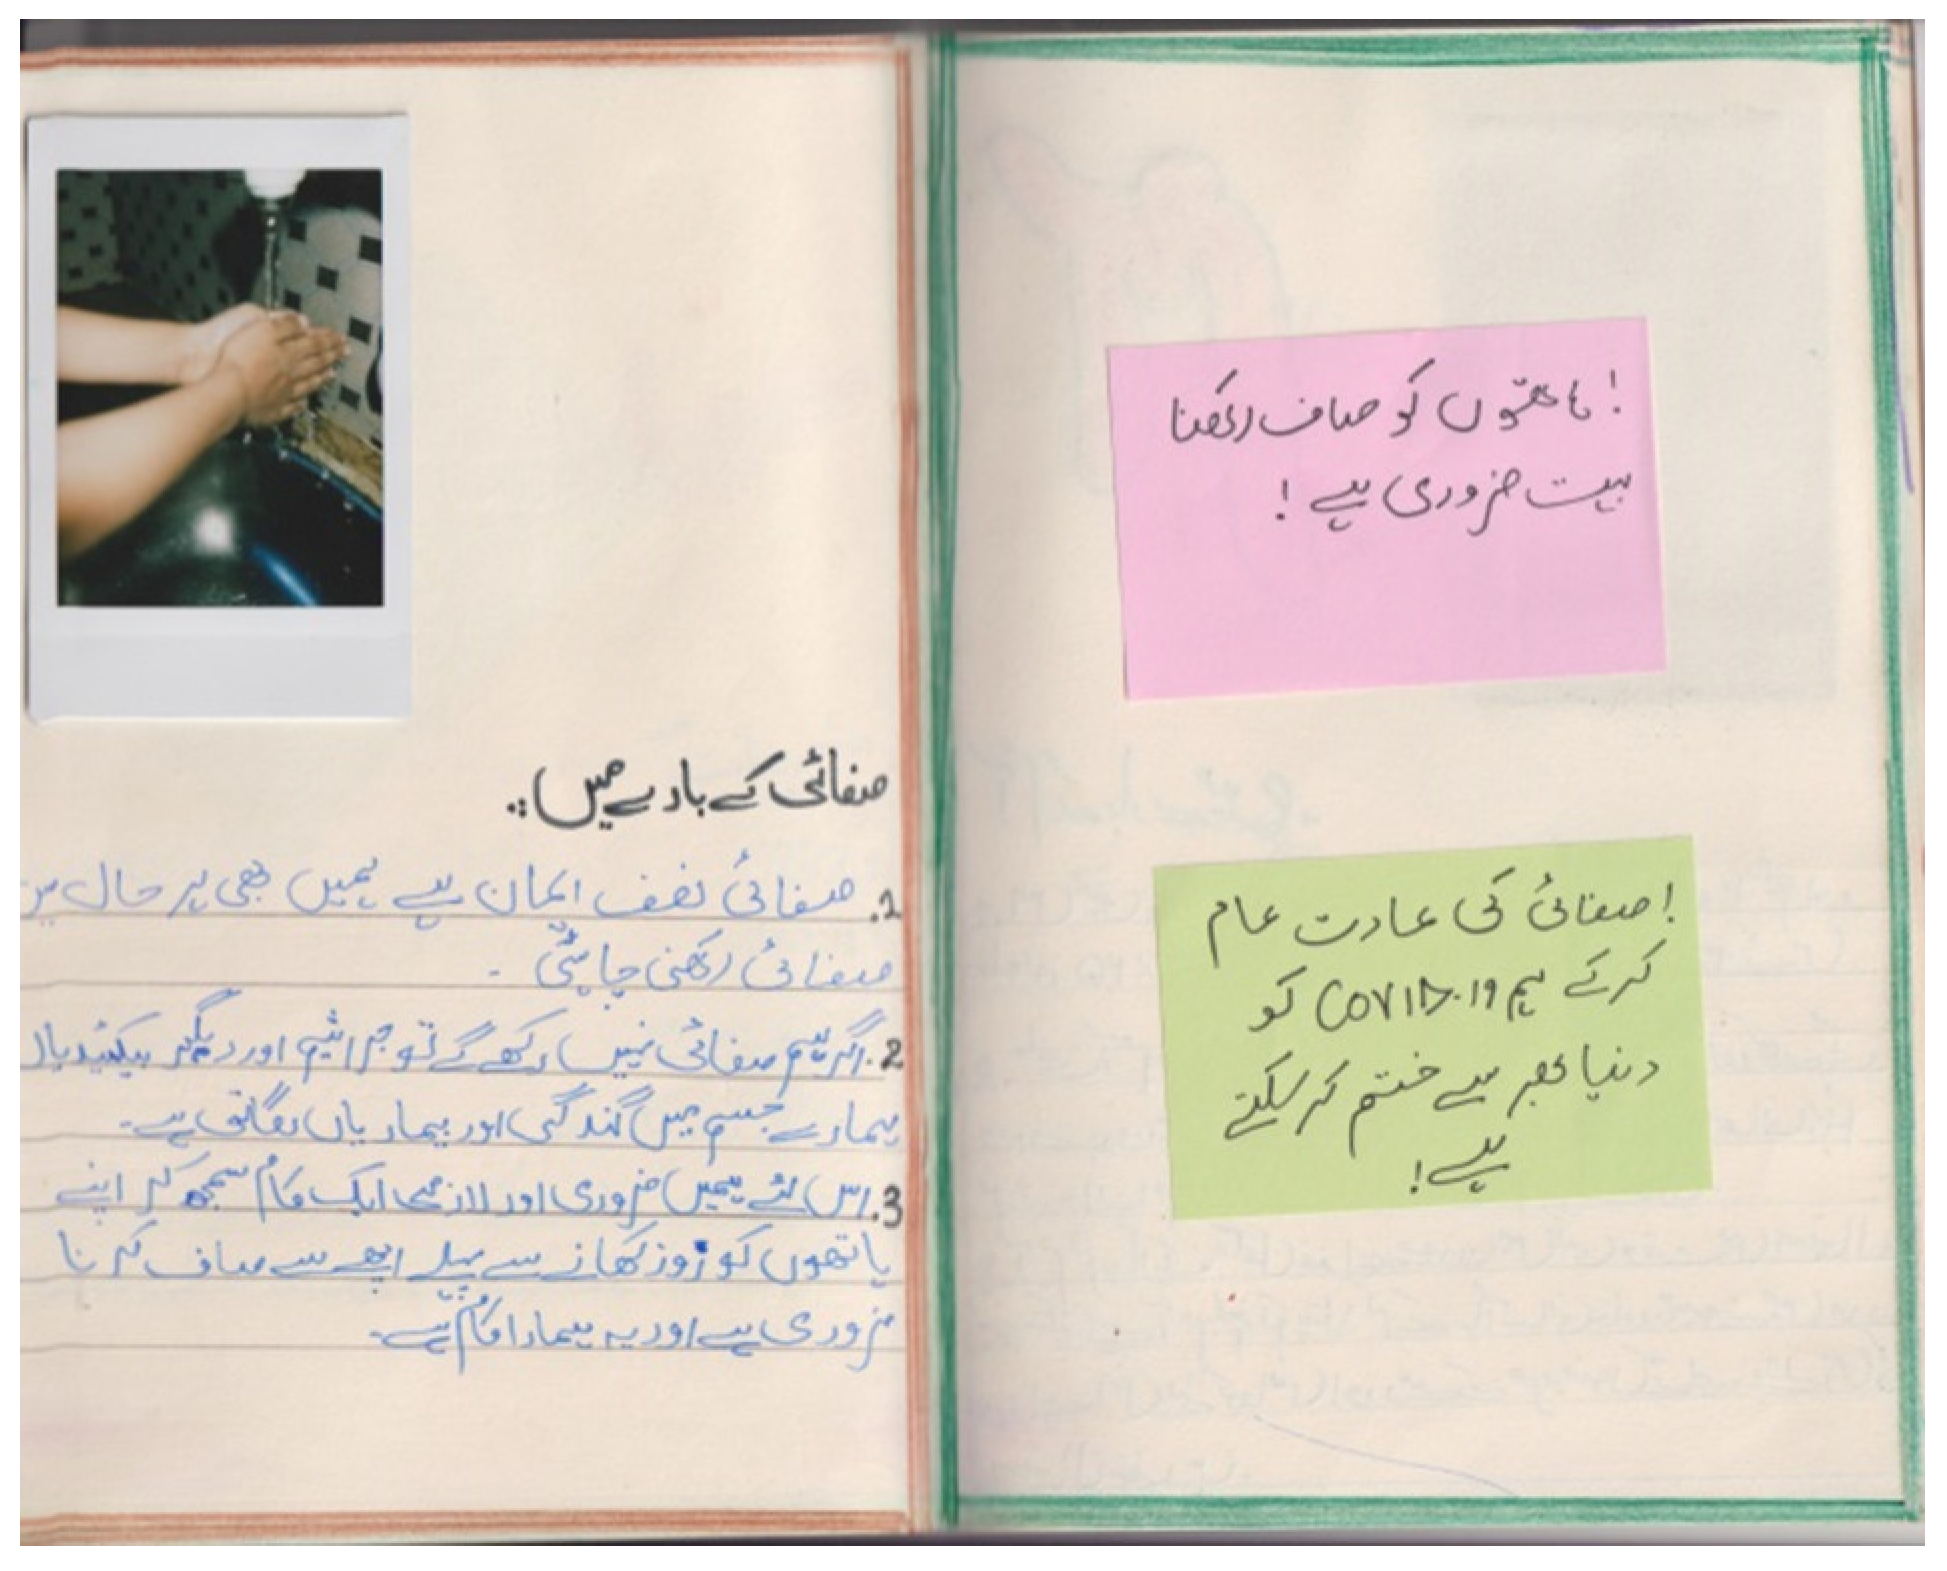 صفائی کے بارے میں:.
1. صفائی نصف ایمان ہے ہمیں بھی ہر حال میں
صفائی رکھنی چاہئیے -
2. اگر ہم صفائی نہیں رکھے گے تو جراثیم اور دیگر
ہمارے جسم میں گندگی اور بیماریاں ہے۔
3. اس لئے ہمیں ضروری اور لازمی ایک کام سمجھ کر اپنے
ہاتھوں کو روز کھانے سے پہلے اچھے سے صاف کرنا
ضروری ہے اور یہ ہمارا کام ہے۔
! ہاتھوں کو صاف رکھنا
بہت ضروری ہے !
! صفائی کی عادت عام
کر کے ہم COVID.19 کو
دنیا بھر سے ختم کر سکتے
ہے !